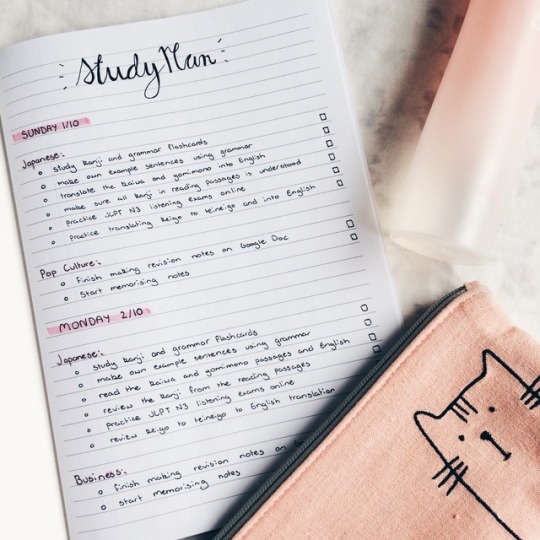 Study Plan
SUNDAY 1/10
Japanese:
study kanji and grammar flashcards
make own example sentences using grammar
translate the kaiwa and yomimono into English
make sure all kanji in reading passages is understood
practice JLPT N3 listening exams online
practice translating keigo to teineigo and into English
Pop Culture:
finish making revision notes on Google Doc
start memorising notes
MONDAY 2/10
Japanese:
study kanji and grammar flashcards
make own example sentences using grammar
read the kaiwa and yomimono passages and English
review the kanji from the reading passages
practice JLPT N3 listening exams online
review keigo to teineigo to English translation
Business:
finish making revision notes on
start memorising notes